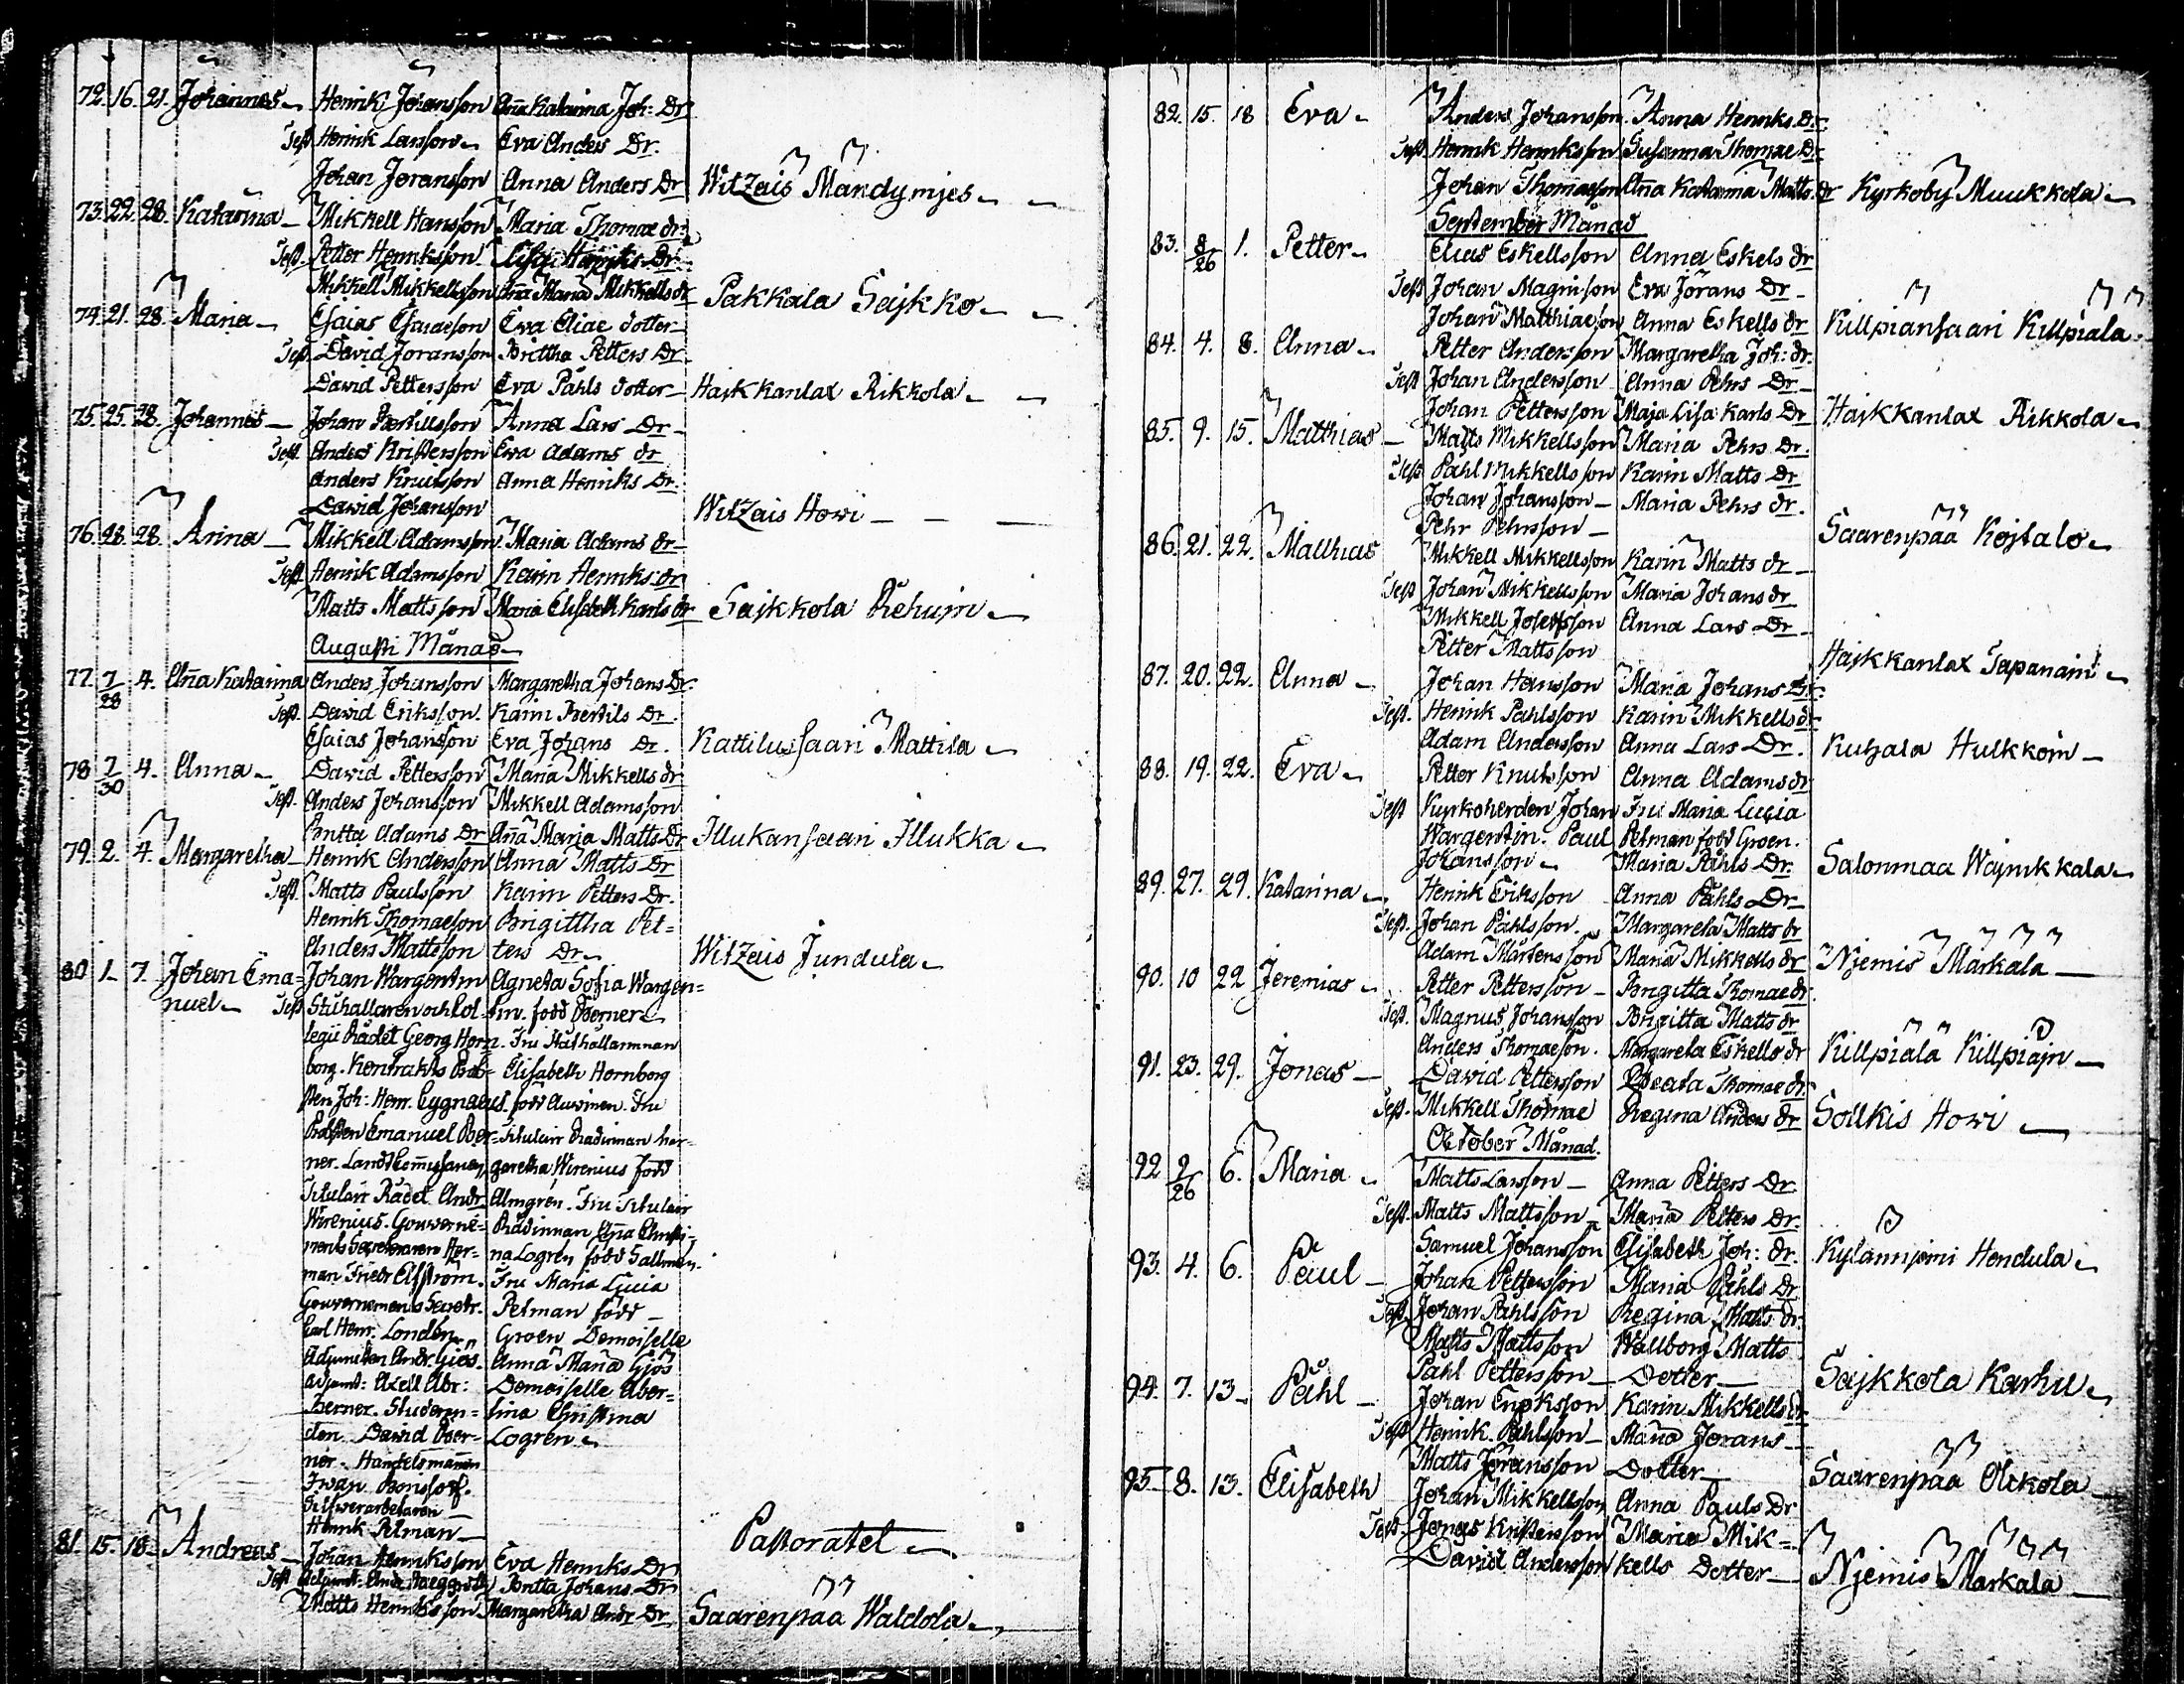 72. 16. 21. Johannes Henrik Johansson Aña Katarina Joh: Dr
Test. Henrik Larsson Eva Anders Dr.
Johan Joransson Anna Anders Dr Witzais Mändymjes
73. 22. 28. Katarina Mikkell Hansson Maria Thomae dr
Test. Petter Henriksson Lisa Henriks Dr.
Mikkell Mikkellsson Aña Maria Mikkells dr Pakkala Sajkko
74. 21. 28. Maria Esaias Esaiaeson Eva Eliae dotter
Test. David Joransson Brittha Petters Dr
David Pettersson Eva Påhls dotter Hajkkanlax Rikkola
75. 25. 28. Johannes Johan Bertillsson Anna Lars Dr
Test. Anders Kristersson Eva Adams dr
Anders Knutsson Anna Henriks Dr.
David Johansson Witzais Howi
76. 28. 28. Anna Mikkell Adamsson Maria Adams dr
Test Henrik Adamsson Karin Henriks dr
Matts Mattsson Maria Elisabeth Karls dr Sajkkola Rehuin
Augusti Månad
77. 7/28 4. Aña Katarina Anders Johansson Margaretha Johans Dr.
Test. David Eriksson. Karin Bertils Dr.
Esaias Johansson Eva Johans Dr. Kattilussaari Mattila
78 7/30 4. Anna David Pettersson Maria Mikkells dr
Test. Anders Johansson Mikkell Adamsson
Britta Adams Dr Aña Maria Matts Dr Illukansaari Illukka
79. 2. 4. Margaretha Henrik Andersson Anna Matts Dr
Test. Matts Paulsson Karin Petters Dr.
Henrik Thomaeson Brigittha Pet=
Anders Mattsson ters Dr. Witzais Jundula
80 1. 7. Johan Ema= Johan Wargentin Agneta Sofia Wargen=
nuel Test Stathallaren och Col- tin. född Berner
legii Rådet Georg Horn- Fru Stathallarinnan
borg. Kontrakts Pro- Elisabeth Hornborg
sten Joh: Henr. Cygnaeus född Fru
Prosten Emanuel Ber= Titulair Rådinnan Mar-
ner. Landtcomissarien garetha Wirenius född
Titulair Rådet Andr. Almgren. Fru Titulair
Wirenius. Gouverne- Rådinnan Aña Christi-
ments Secreteraren Her- na Logren född Sallmén.
man Friedr Alfström. Fru Maria Lucia
Gouvernements Secretr. Petman född
Carl Henr. Londén Groen Demoiselle
Adjuncten Andr. Giös. Anna Maria Giös
Adjunct: Axell Abr: Demoiselle Aber=
Berner. Studeren= tina Christina
den David Ber- Logren
ner. Handelsmannen
Iwan Borissoff.
Silfwerarbetaren
Henrik Petman Pastoratet
81. 15. 18. Andreas Johan Henriksson Eva Henriks Dr
Test Adjunct. Andr. Britta Johans Dr
Matts Henriksson Margaretha Andr Dr Saarenpää Waldola
82. 15. 18 Eva Anders Johansson Anna Henriks Dr.
Test Henrik Henriksson Susanna Thomae Dr
Johan Thomaeson Aña Katarina Matts dr Kyrkoby Muukkola
September Månad
83. 8/26 1. Petter Elias Eskellsson Anna Eskels dr
Test Johan Magnisson Eva Jörans Dr
Johan Matthiaeson Anna Eskells dr Killpiansaari Killpiala
84. 4. 8. Anna Petter Andersson Margaretha Joh: dr.
Test Johan Andersson Anna Pehrs Dr
Johan Pettersson Maja Lisa Karls Dr Hajkkanlax Rikkola
85. 9. 15. Matthias Matts Mikkellsson Maria Pehrs Dr.
Test Påhl Mikkellsson Karin Matts dr
Johan Johansson Maria Pehrs dr.
Pehr Pehrsson Saarenpää Kojtalo
86. 21. 22. Matthias Mikkell Mikkellsson Karin Matts dr
Test Johan Mikkellsson Maria Johans dr
Mikkell Josefsson Anna Lars Dr
Petter Mattsson Hajkkanlax Tapanain
87. 20. 22. Anna Johan Hansson Maria Johans Dr.
Test. Henrik Påhlsson Karin Mikkells dr
Adam Andersson Anna Lars Dr. Kuhala Hulkkoin
88. 19. 22. Eva Petter Knutsson Anna Adams dr
Test Kyrkoherden Johan Fru Maria Lucia
Wargentin. Paul Petman född Groen.
Johansson Maria Påhls Dr. Salonmaa Wäjnikkala
89. 27. 29. Katarina Henrik Eriksson Anna Påhls Dr
Test. Johan Påhlsson. Margareta Matts dr
Adam Mårtensson Maria Mikkells dr Njemis Märkälä
90. 10 22 Jeremias Petter Pettersson Brigitta Thomae dr
Test. Magnus Johansson Brigitta Matts dr
Anders Thomaeson. Margareta Eskells dr Killpiälä Killpiäjn
91. 23. 29. Jonas David Pettersson Beata Thomae dr.
Test. Mikkell Thomae Regina Anders dr Sollkis Howi
October Månad.
92 9/26 6. Maria Matts Larsson Anna Petters Dr
Test. Matts Mattsson Maria Petters Dr.
Samuel Johansson Elisabeth Joh: dr. Kylännjemi Hendula
93. 4. 6. Paul Johan Pettersson Maria Påhls Dr
Test Johan Påhlsson Regina Matts dr.
Matts Mattsson Wallborg Matts
Påhl Pettersson Dotter Sajkkola Karhu
94. 7. 13 Påhl Johan Eriksson Karin Mikkells dr
Test Henrik Påhlsson Maria Jörans
Matts Joransson Dotter Saarenpää Olckola
95 8. 13. Elisabeth Johan Mikkellsson Anna Pauls Dr
Test Jonas Kristersson Maria Mik=
David Andersson kells Dotter Njemis Markala